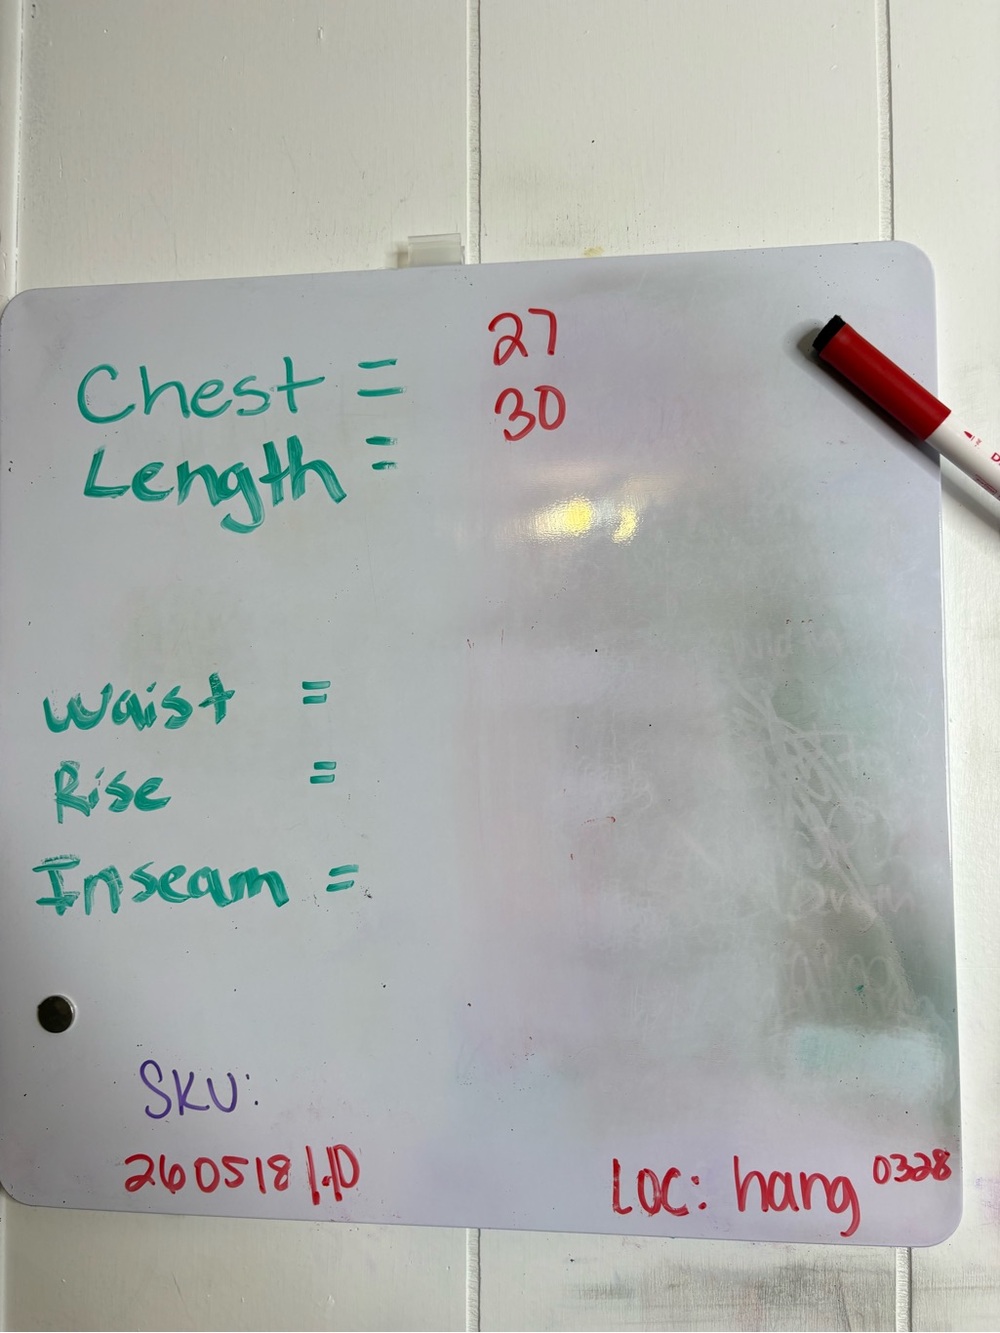 Chest = 27
Length = 30
Waist =
Rise =
Inseam =
SKU:
260518
LOC: hang 0328